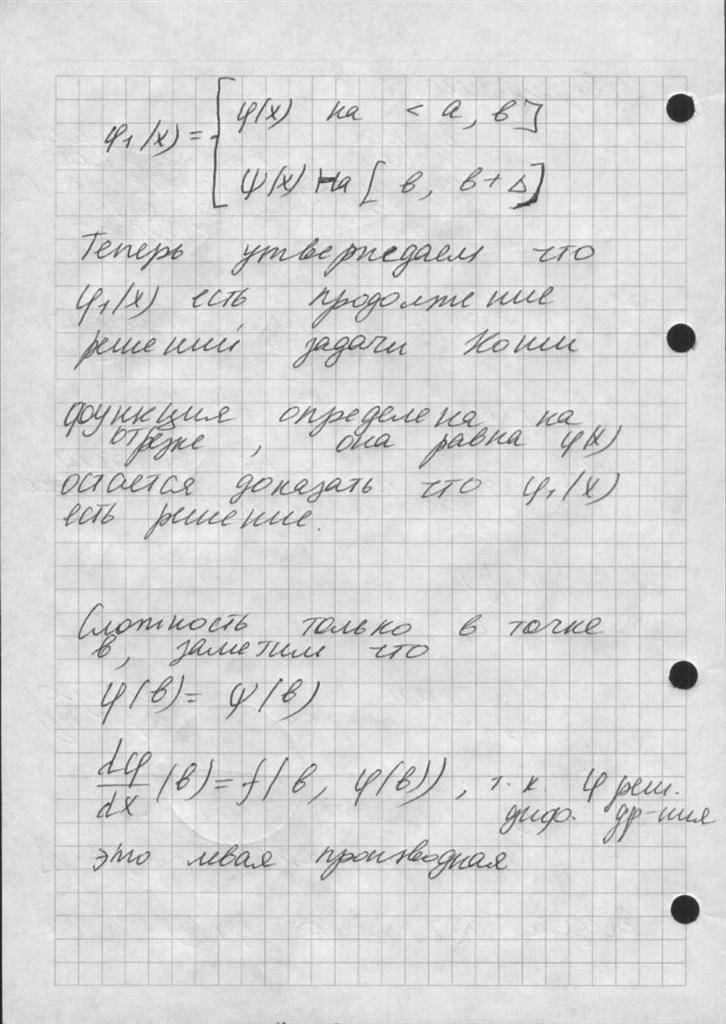 φ₁(x) = [ φ(x) на < a, в ]
ψ(x) на [ в, в + Δ ]
Теперь утверждаем что
φ₁(x) есть продолжение
решений задачи Коши
функция определена на
отрезке , она равна φ(x)
остается доказать что φ₁(x)
есть решение.
Сложность только в точке
в, заметим что
φ(в) = ψ(в)
dφ/dx (в) = f(в, φ(в)) , т. к. φ реш.
диф. ур-ния
это левая производная